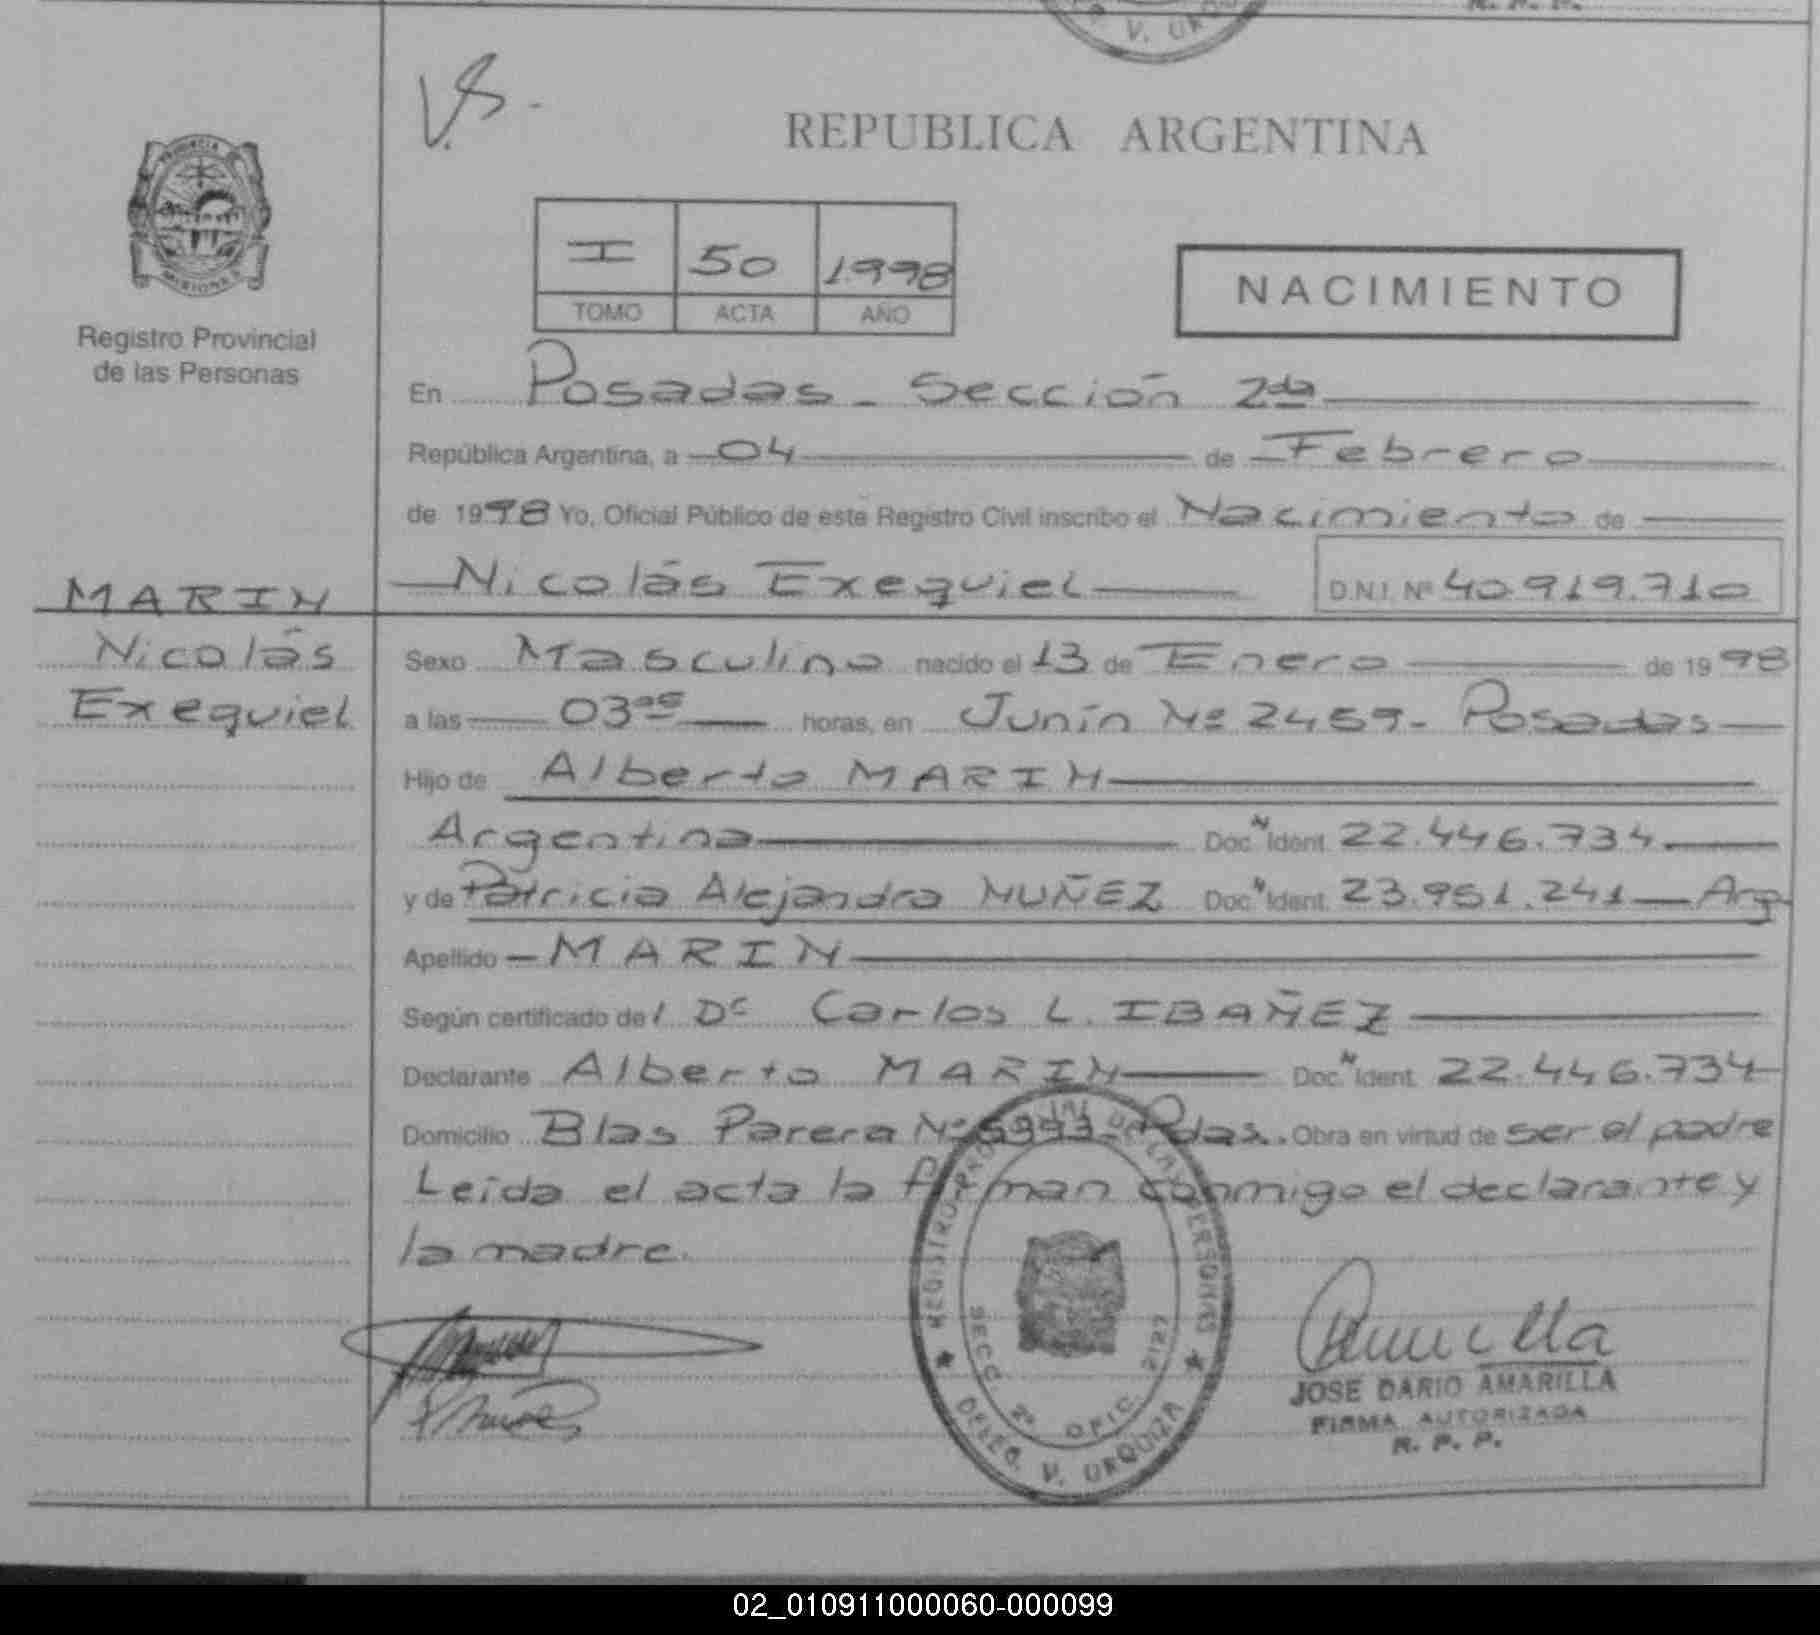 V. URQU
R. P. P.
VS.-
REPUBLICA ARGENTINA
PROVINCIA
MISIONES
I 50 1998
TOMO ACTA AÑO
NACIMIENTO
Registro Provincial
de las Personas
En Posadas - Sección 2da
República Argentina, a 04 de Febrero
de 1998 Yo, Oficial Público de este Registro Civil inscribo el Nacimiento de
Nicolás Exequiel D.N.I. Nº 40.919.710
MARIN
Nicolás
Exequiel
Sexo Masculino nacido el 13 de Enero de 1998
a las 03 horas, en Junín Nº 2459- Posadas
Hijo de Alberto MARIN
Argentina Doc. Ident. 22.446.734.
y de Patricia Alejandra MUÑEZ Doc. Ident. 23.951.241 - Arg
Apellido - MARIN
Según certificado del Dr Carlos L. IBAÑEZ
Declarante Alberto MARIN Doc. Ident. 22.446.734
Domicilio Blas Parera Nº 5993- Pdas. Obra en virtud de ser el padre
Leída el acta la firman conmigo el declarante y
la madre.
REGISTRO PROVINCIAL DE LAS PERSONAS
SECC. 2ª OFIC. 2127
DELEG. V. URQUIZA
JOSE DARIO AMARILLA
FIRMA AUTORIZADA
R. P. P.
02_010911000060-000099